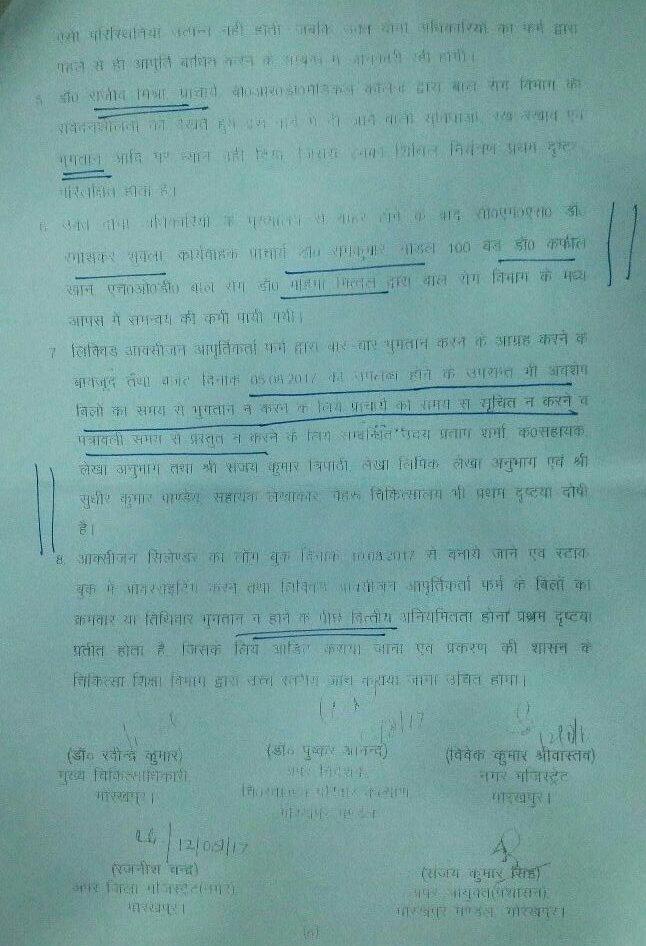 ऐसी परिस्थितियां उत्पन्न नहीं होती जबकि उक्त दोनों अधिकारियों को फर्म द्वारा
पहले से ही आपूर्ति बाधित करने के सम्बन्ध में जानकारी रही होगी।
5. डॉ0 राजीव मिश्रा, प्राचार्य, बी0आर0डी0मेडिकल कॉलेज द्वारा बाल रोग विभाग की
संवेदनशीलता को देखते हुए इस कार्य में दी जाने वाली सुविधाओं, रख रखाव एवं
भुगतान आदि पर ध्यान नहीं दिया, जिससे इनका शिथिल नियंत्रण प्रथम दृष्टया
परिलक्षित होता है।
6. उक्त दोनों अधिकारियों के मुख्यालय से बाहर होने के बाद सी0एम0एस0 डॉ.
रमाशंकर शुक्ला, कार्यवाहक प्राचार्य डॉ0 रामकुमार 100 बेड डॉ0 कफील
खान एच0ओ0डी0 बाल रोग डॉ0 महिमा मित्तल द्वारा बाल रोग विभाग के मध्य
आपस में समन्वय की कमी पायी गयी।
7. लिक्विड आक्सीजन आपूर्तिकर्ता फर्म द्वारा बार-बार भुगतान करने के आग्रह करने के
बावजूद तथा बजट दिनांक 05.08.2017 को उपलब्ध होने के उपरान्त भी अवशेष
बिलों का समय से भुगतान न करने के लिये प्राचार्य को समय से सूचित न करने व
पत्रावली समय से प्रस्तुत न करने के लिये सम्बन्धित उदय प्रताप शर्मा, क0सहायक,
लेखा अनुभाग तथा श्री संजय कुमार त्रिपाठी, लेखा लिपिक, लेखा अनुभाग एवं श्री
सुधीर कुमार पाण्डेय, सहायक लेखाकार, नेहरू चिकित्सालय भी प्रथम दृष्टया दोषी
है।
8. आक्सीजन सिलेण्डर का लॉग बुक दिनांक 10.08.2017 से बनाये जाने एवं स्टाक
बुक में ओवरराइटिंग करने तथा लिक्विड आक्सीजन आपूर्तिकर्ता फर्म के बिलों का
क्रमवार या तिथिवार भुगतान न होने के पीछे वित्तीय अनियमितता होना प्रथम दृष्टया
प्रतीत होता है, जिसके लिये आडिट कराया जाना एवं प्रकरण की शासन के
चिकित्सा शिक्षा विभाग द्वारा उच्च स्तरीय जांच कराया जाना उचित होगा।
(डॉ० रवीन्द्र कुमार)
मुख्य चिकित्साधिकारी,
गोरखपुर।
(डॉ० पुष्कर आनन्द)
अपर निदेशक,
चिकित्सा एवं परिवार कल्याण
गोरखपुर मण्डल
(विवेक कुमार श्रीवास्तव)
नगर मजिस्ट्रेट
गोरखपुर।
12/08/17
(रजनीश चन्द्र)
अपर जिला मजिस्ट्रेट(नगर),
गोरखपुर।
(संजय कुमार सिंह)
अपर आयुक्त(प्रशासन),
गोरखपुर मण्डल, गोरखपुर।